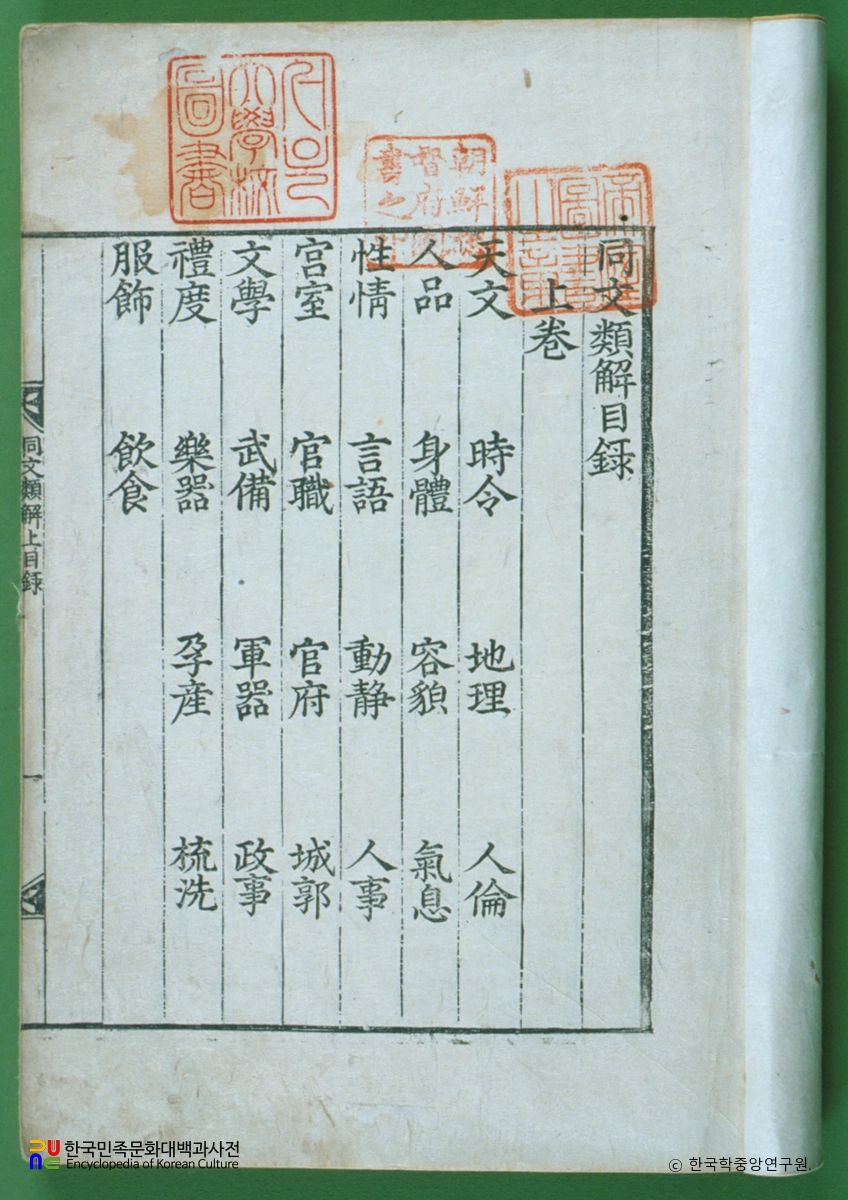 同文類解目録
上卷
天文 時令 地理 人倫
人品 身體 容貌 氣息
性情 言語 動静 人事
宮室 官職 官府 城郭
文學 武備 軍器 政事
禮度 樂器 孕産 梳洗
服飾 飲食
同文類解上目録
一
大學校
圖書
朝鮮
督府圖
書之
한국민족문화대백과사전
Encyclopedia of Korean Culture
© 한국학중앙연구원